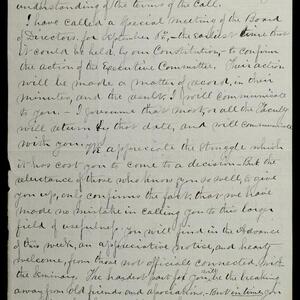 understanding of the terms of the call.
I have called a special meeting of the Board
of Directors, for September 8th, - the earliest time that
it could be held, by our Constitution, - to confirm
the action of the Executive Committee. Their action
will be made a matter of record, in their
minutes, and the result, I will communicate
to you. - I presume that most, or all the Faculty
will return by that date, and will communicate
with you.
We appreciate the struggle which
it has cost you to come to a decision - but the
reluctance of those who know you so well, to give
you up, only confirms the fact, that we have
made no mistake in calling you to this larger
field of usefulness. You will find in the Advance
of this week, an appreciative notice, and hearty
welcome, from those not officially connected with
the Seminary. The hardest part for you, will be the breaking
away from old friends and associations. - But in time, you